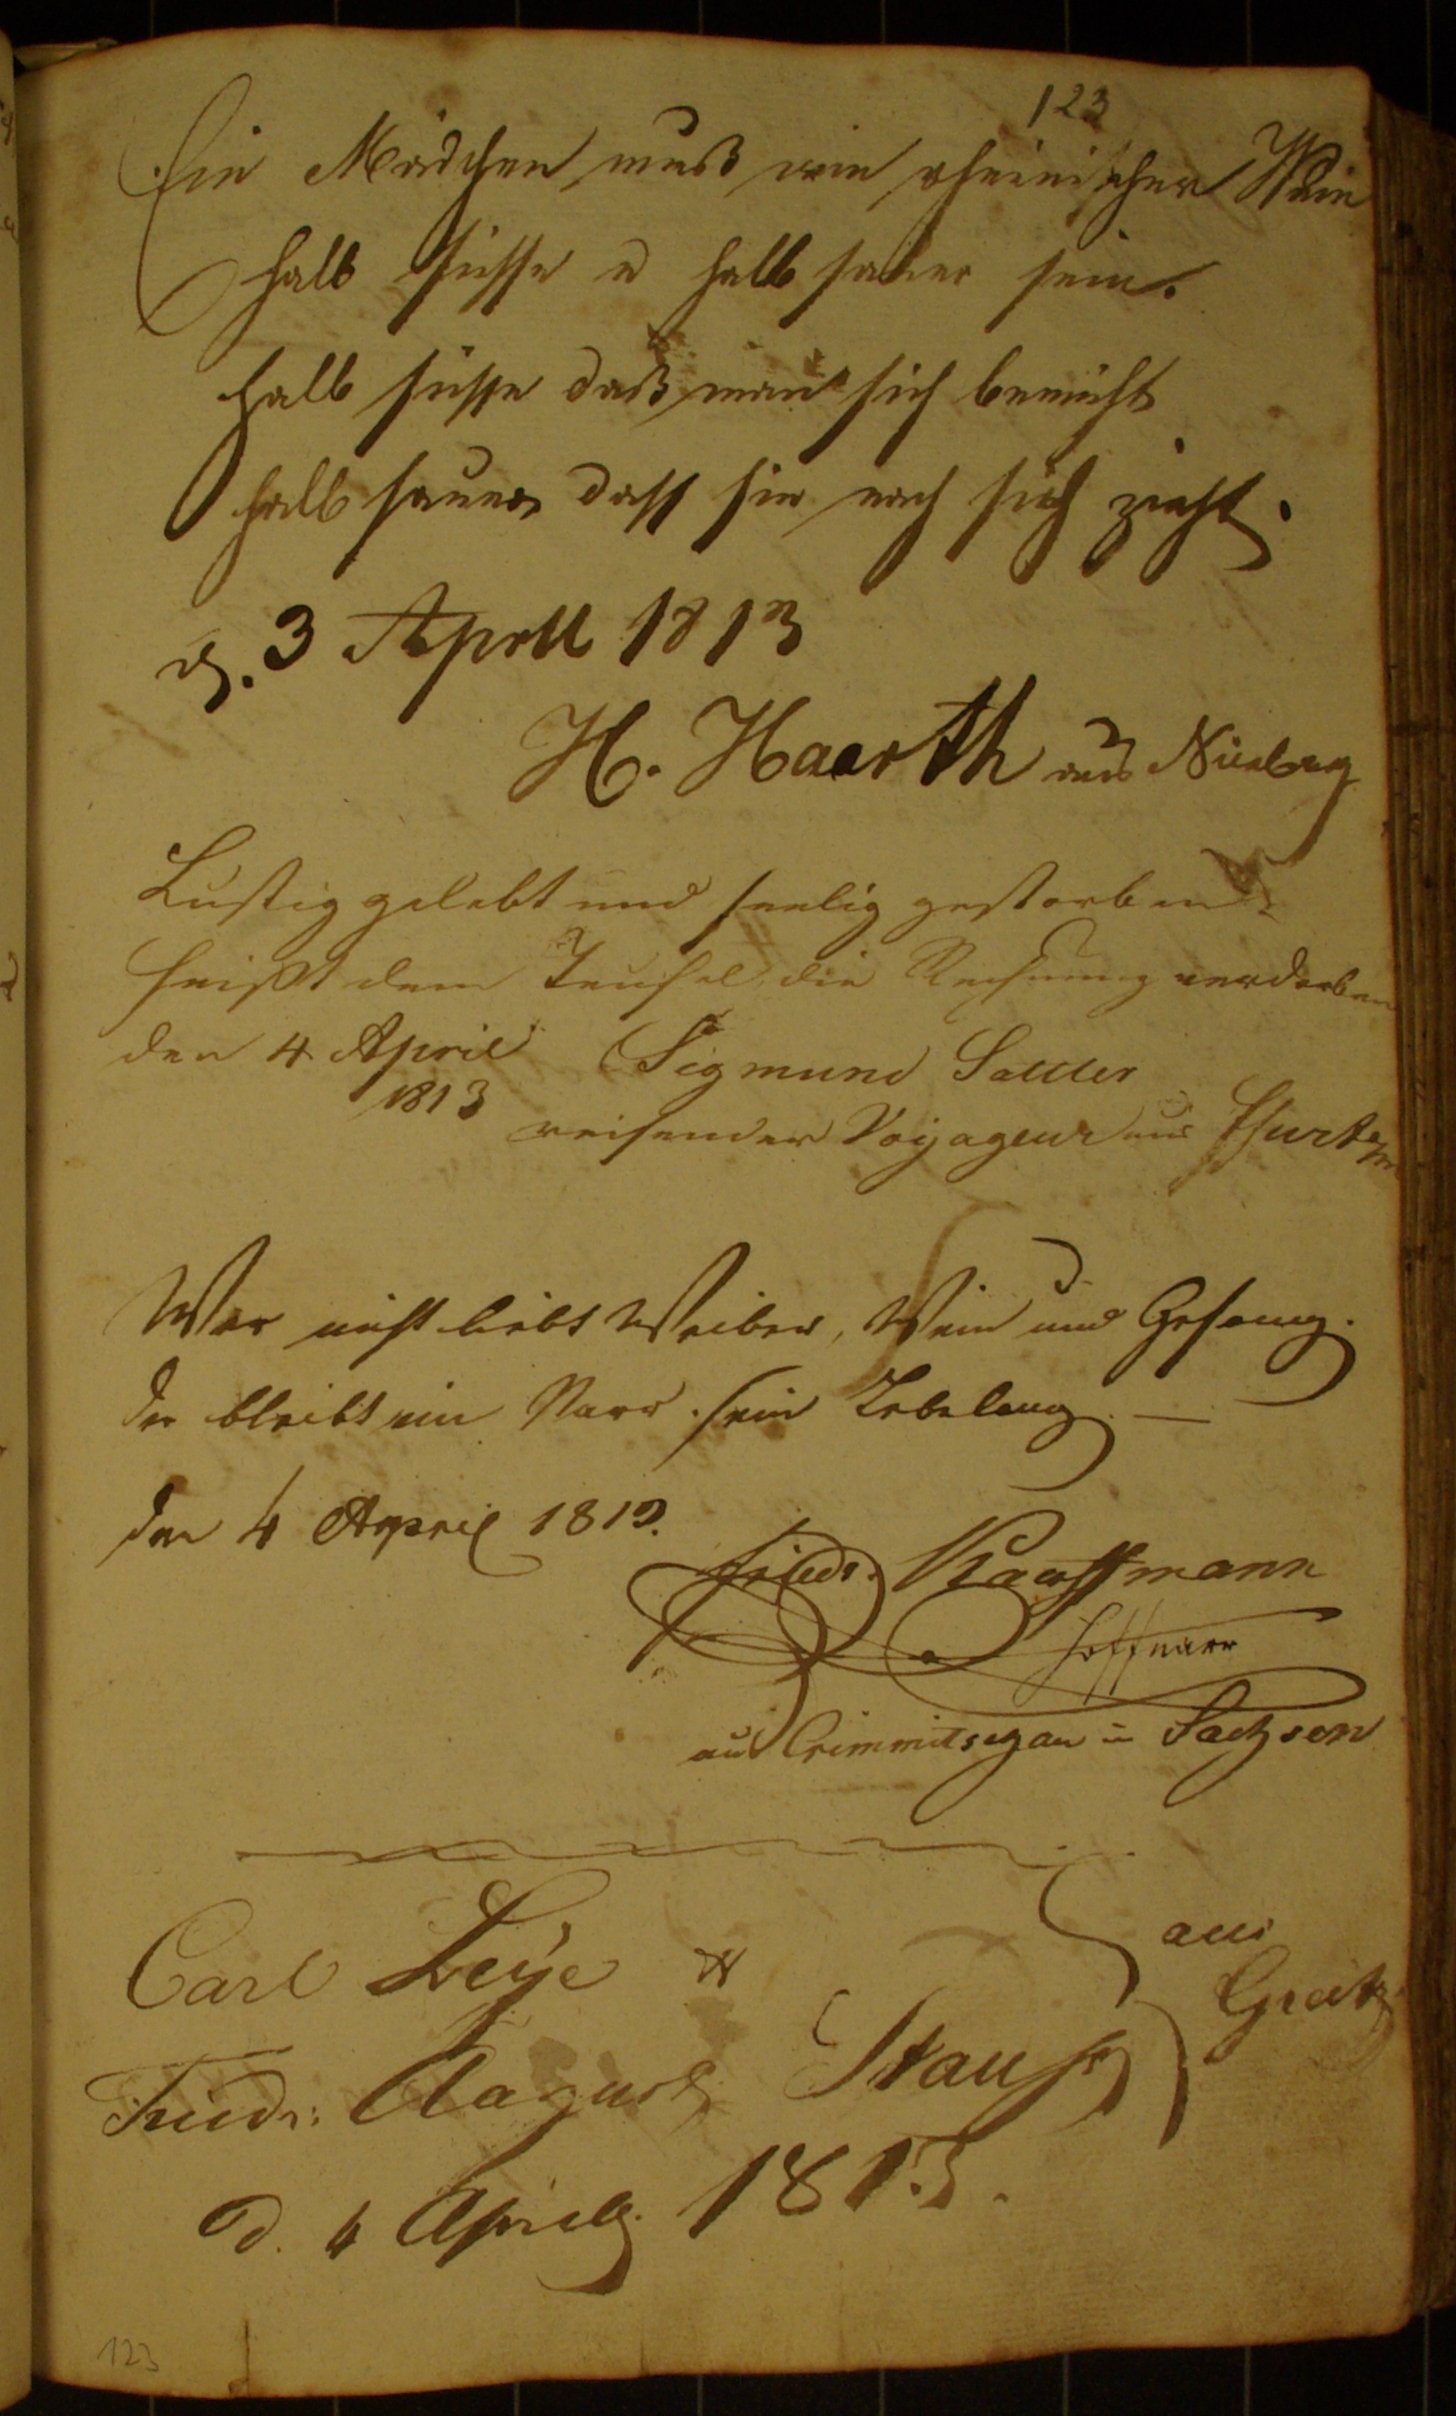 123
Ein Mädchen muß wie rheinischer Wein
halb süsse u halb sauer sein.
halb süsse daß man sich bemüht
halb sauer dass sie nach sich zieht.
d. 3 Aprill 1813
H. Haarth aus Nürbrg
Lustig gelebt und seelig gestorben
heißt dem Teufel die Rechnung verdorben
den 4 April Sigmund
1813
reisender Voyageur aus
Wer nicht liebt Weiber, Wein und Gesang.
Der bleibt ein Narr sein Lebelang. —
den 4 April 1813.
Friedr. Kauffmann
Hoffnarr
aus Crimmitschau in Sachsen
Carl Leye &
aus
Greitz
Friedr: August Stauss
d. 4 April 1813.
123